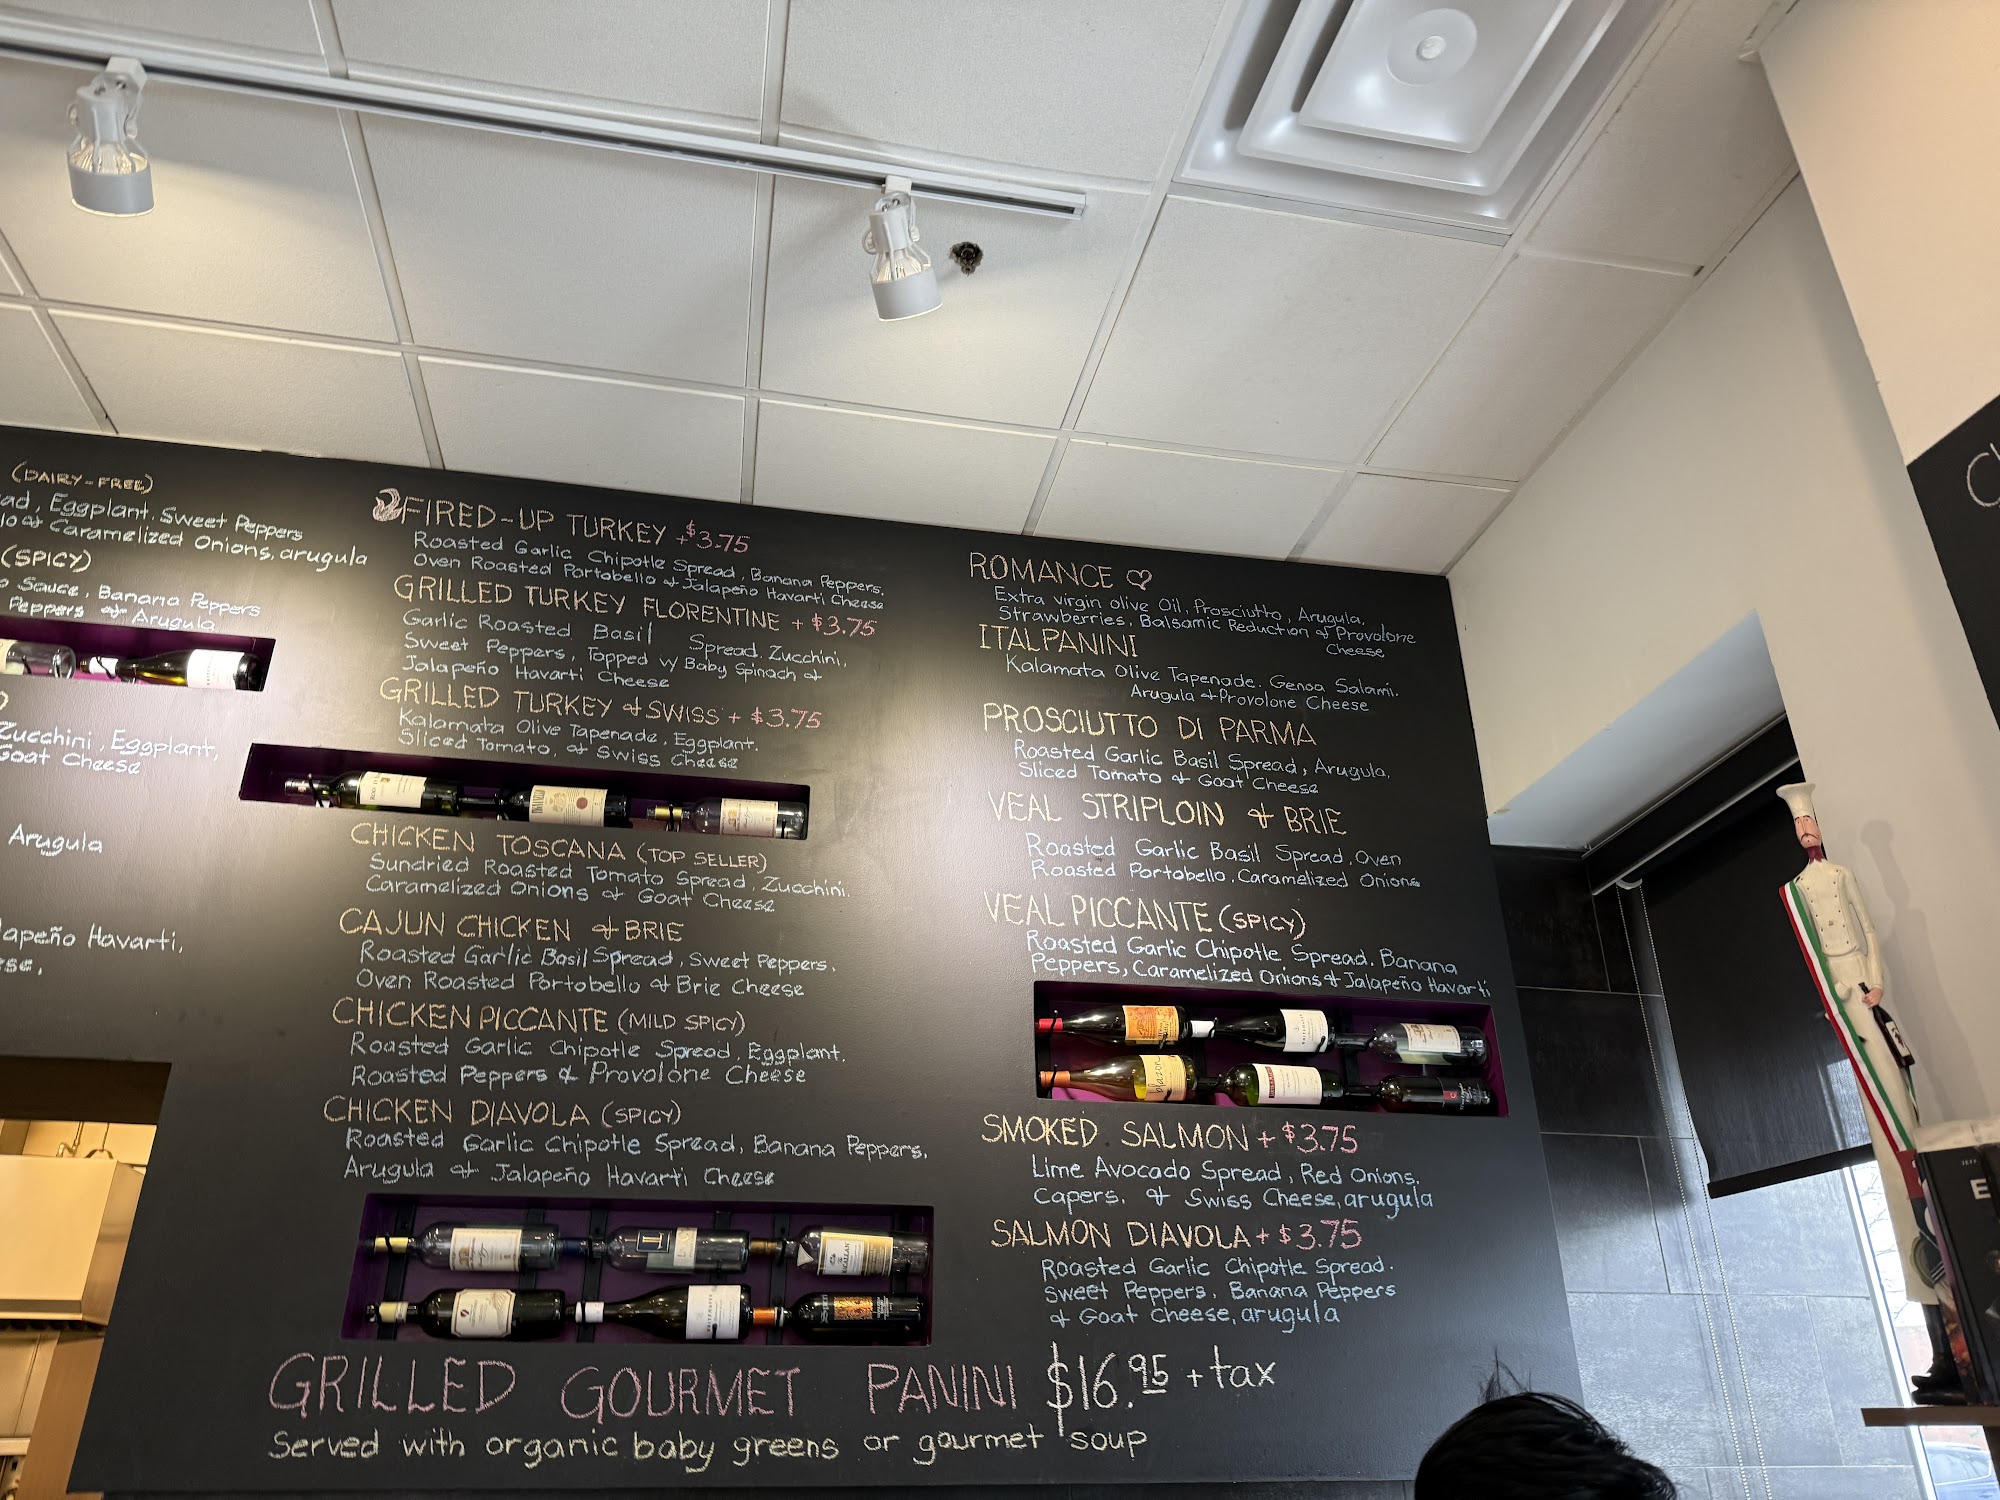 (DAIRY-FREE)
Eggplant, Sweet Peppers
Caramelized Onions, arugula
(SPICY)
Sauce, Banana Peppers
Peppers & Arugula
Zucchini, Eggplant,
Goat Cheese
Arugula
Havarti,
FIRED-UP TURKEY +$3.75
Roasted Garlic Chipotle Spread, Banana Peppers,
Oven Roasted Portobello & Jalapeño Havarti Cheese
GRILLED TURKEY FLORENTINE + $3.75
Garlic Roasted Basil Spread, Zucchini,
Sweet Peppers, Topped w/ Baby Spinach &
Jalapeño Havarti Cheese
GRILLED TURKEY & SWISS + $3.75
Kalamata Olive Tapenade, Eggplant,
Sliced Tomato, & Swiss Cheese
CHICKEN TOSCANA (TOP SELLER)
Sundried Roasted Tomato Spread, Zucchini,
Caramelized Onions & Goat Cheese
CAJUN CHICKEN & BRIE
Roasted Garlic Basil Spread, Sweet Peppers,
Oven Roasted Portobello & Brie Cheese
CHICKEN PICCANTE (MILD SPICY)
Roasted Garlic Chipotle Spread, Eggplant,
Roasted Peppers & Provolone Cheese
CHICKEN DIAVOLA (SPICY)
Roasted Garlic Chipotle Spread, Banana Peppers,
Arugula & Jalapeño Havarti Cheese
ROMANCE
Extra virgin olive Oil, Prosciutto, Arugula,
Strawberries, Balsamic Reduction & Provolone
Cheese
ITALPANINI
Kalamata Olive Tapenade, Genoa Salami,
Arugula & Provolone Cheese
PROSCIUTTO DI PARMA
Roasted Garlic Basil Spread, Arugula,
Sliced Tomato & Goat Cheese
VEAL STRIPLOIN & BRIE
Roasted Garlic Basil Spread, Oven
Roasted Portobello, Caramelized Onions
VEAL PICCANTE (SPICY)
Roasted Garlic Chipotle Spread, Banana
Peppers, Caramelized Onions & Jalapeño Havarti
SMOKED SALMON + $3.75
Lime Avocado Spread, Red Onions,
Capers, & Swiss Cheese, arugula
SALMON DIAVOLA + $3.75
Roasted Garlic Chipotle Spread,
Sweet Peppers, Banana Peppers
& Goat Cheese, arugula
GRILLED GOURMET PANINI $16.95 + tax
Served with organic baby greens or gourmet soup